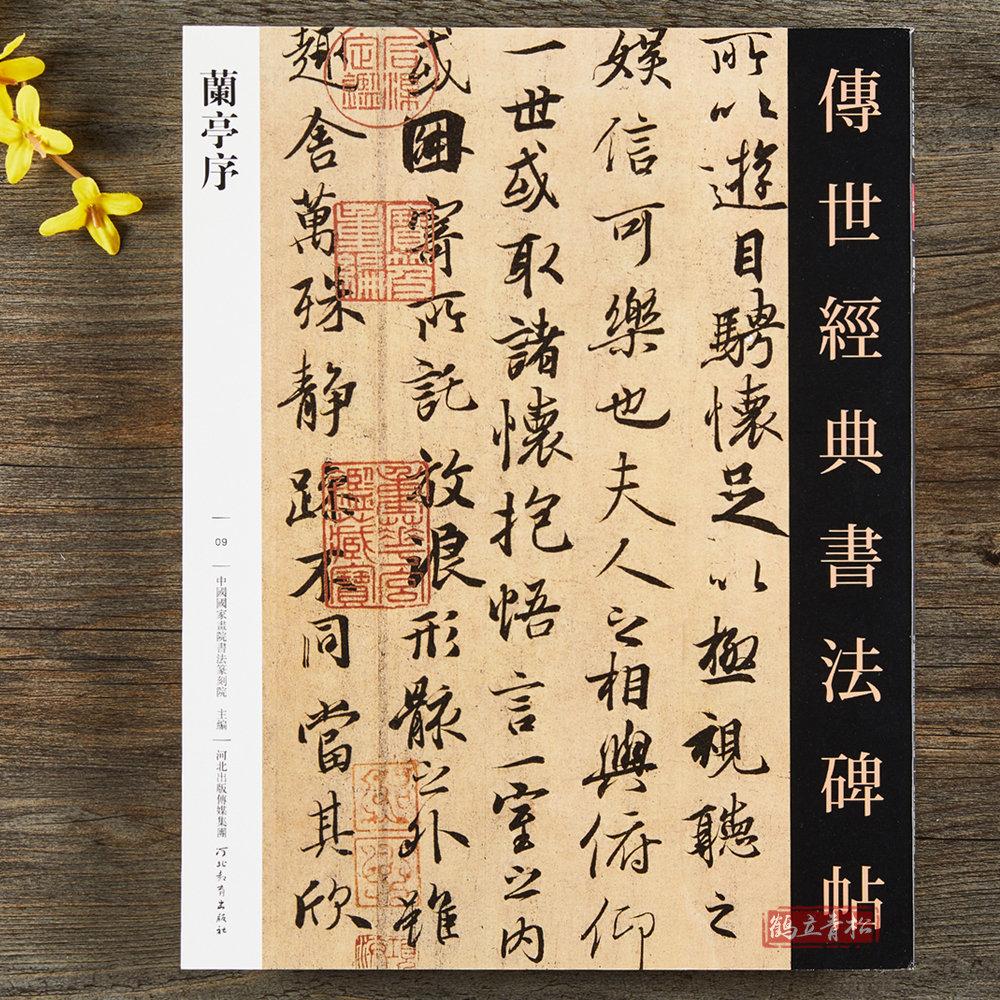 傳世經典書法碑帖
所以遊目騁懷足以極視聽之
娛信可樂也夫人之相與俯仰
一世或取諸懷抱悟言一室之內
或因寄所託放浪形骸之外雖
趣舍萬殊静躁不同當其欣
蘭亭序
09
中國國家畫院書法篆刻院 主編
河北出版傳媒集團
河北教育出版社
鹤立青松